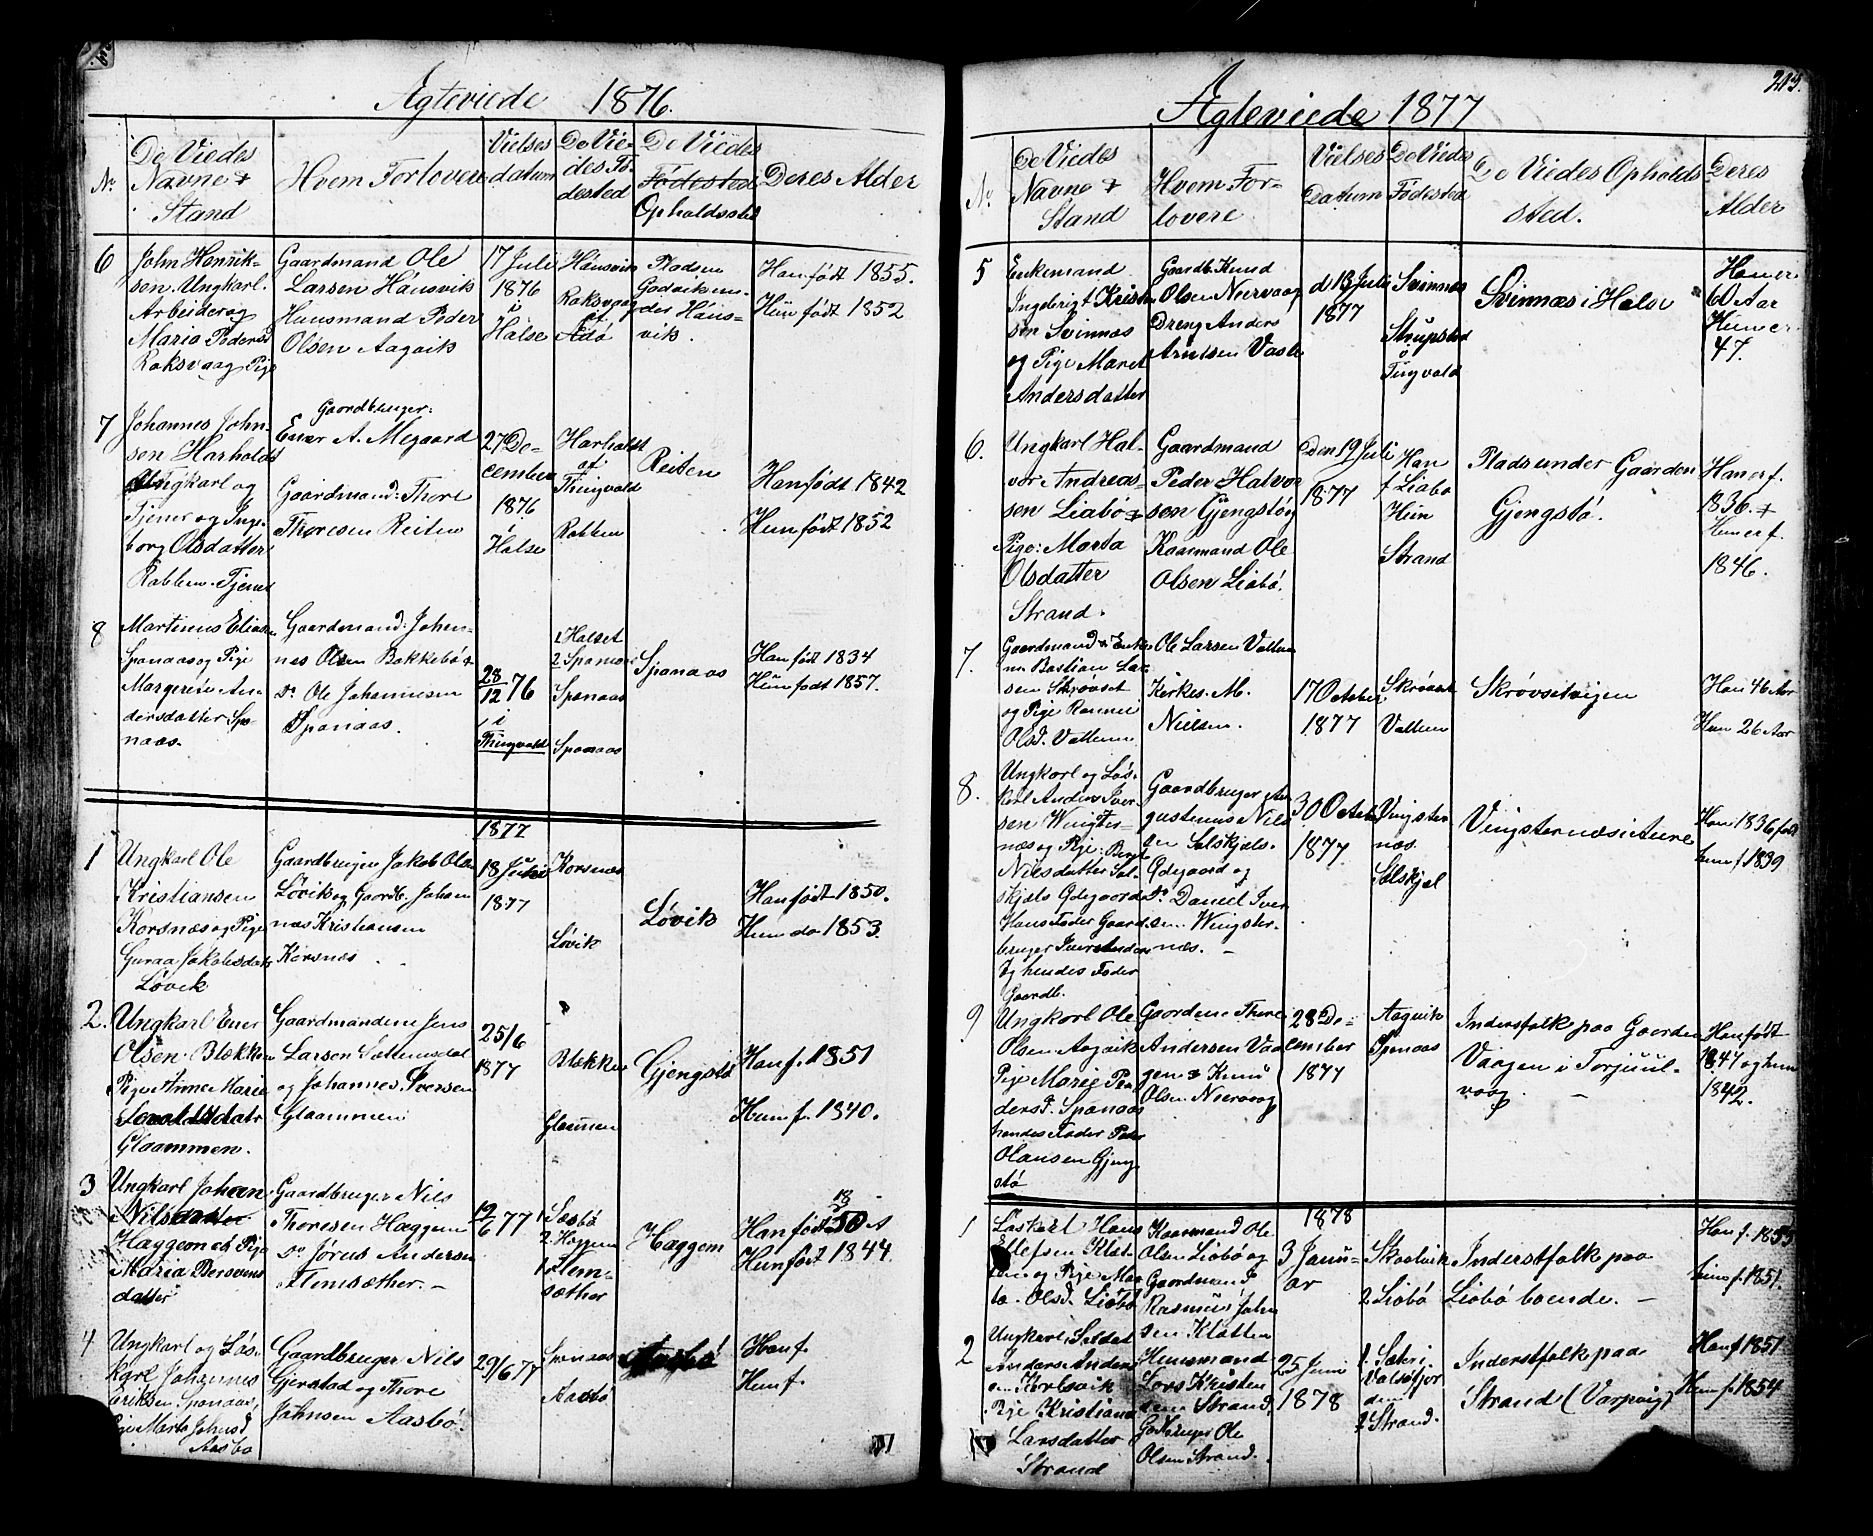 Ægteviede 1876.
No
De Viedes
Navne &
Stand
Hvem Forlovere
Vielses
datum
De Vie-
des Fö-
dessted
De Viedes
Födested
Opholdssted
Deres Alder
6
John Henrik-
sen Ungkarl.
Arbeider og
Maria Pedersd
Roksvaag Pige
Gaardmand Ole
Larsen Hausvik
Huusmand Peder
Olsen Aagvik
17 Juli
1876
i
Halse
Hausvik
Roksvaag
Adö
Pladsen
Godviken un-
der Haus-
vik.
Han født 1855.
Hun født 1852
7
Johannes John-
sen Harholdt
Ungkarl og
Tjener og Inge-
borg Olsdatter
Rabben. Tjener
Gaardbruger:
Ener A. Megaard
Gaardmand: Thore
Thoresen Reiten
27 De-
cember
1876
i
Halse
Harholdt
af
Thingvold
Rabben
Reiten
Han født 1842
Hun født 1852
8
Martinus Elias
Spanaas og Pige
Margrete An-
dersdatter Spa-
naas.
Gaardmand: Johan-
nes Olsen Bakkebö &
Do Ole Johannesen
Spanaas.
28/12 76
i
Thingvold
1 Halset
2 Spanaas
Spanaas
Spanaas
Spanaas
Han født 1834
Hun født 1857.
1877
1
Ungkarl Ole
Kristiansen
Korsnæs og Pige
Guraa Jakobsdatr
Lövik
Gaardbruger Jakob Olsen
Lövik og Gaardb. Johan
nas Kristiansen
Korsnæs
18 Juni
1877
Korsnæs
Lövik
Lövik
Han født 1850.
Hun do 1853.
2.
Ungkarl Ener
Olsen Blekken
Pige Anne Marie
Glaammen.
Gaardmændene Jens
Larsen Settemsdal
og Johannes Iversen
Glaammen
25/6
1877
Blekken
Glaamen
Gjengstö
Han f. 1851
Hun f. 1840.
3
Ungkarl Johan
Nilsdatter
Hæggem og Pige
Maria Bersvens
datter
Gaardbruger Nils
Thoresen Hæggem
Do Jørus Andersen
Flemsæther. –
19/6 77
Sæsbö
2 Hæggem
1 Flem-
sæther
Hæggem
Han født 1850 A
Hun født 1844.
4
Ungkarl og Lös-
karl Johannes
Eriksen Spanaas,
Pige Marta Johnsd
Aasbö
Gaardbruger Nils
Gjerstad og Thore
Johnsen Aasbö.
29/6 77
Spanaas
Aasbö
Aasbö
Han f.
Hun f.
Ægteviede 1877
213.
No
De Viedes
Navne &
Stand
Hvem For-
lovere
Vielses
Datum
De Viedes
Födested
De Viedes Opholds
sted.
Deres
Alder
5
Enkemand
Ingebrigt Kristen
sen Svinnæs
og Pige Maret
Andersdatter
Gaardb. Knud
Olsen Neervaag
Dreng Anders
Arntsen Vaslev
d 13 Juli
1877
Svinnæs
Strupstad
i
Tingvold
Svinnæs i Halse
Han er
60 Aar
Hun er
47.
6.
Ungkarl Hal-
vor Andreas-
sen Liabö &
Pige: Marta
Olsdatter
Strand.
Gaardmand
Peder Halvor
sen Gjengstöy
Kaarmand Ole
Olsen Liabö.
Den 19 Juli
1877
Han
f Liabö
Hun
Strand
Plads under Gaarden
Gjengstö.
Han er f.
1836. &
Hun er f.
1846.
7.
Gaardmand & Enke
m. Bastian Lar
sen Skrövset
og Pige Rannei
Olsd. Vullum
Ole Larsen Vullum
Kirkes. M.
Nielsen.
17 October
1877
Skrövset
Vullum
Skrövsetvigen
Han 46 Aar
Hun 26 Aar
8.
Ungkarl og Lös-
karl Anders Iver-
sen Wingster-
næs og Pige: Berit
Nilsdatter Sæl-
skjæls Ödegaard
Hans Fader Gaard
bruger Iver Anders
Og hendes Fader
Gaardb.
Gaardbruger Au-
gustinus Nils
sen Selskjels-
Ödegaard og
Do Daniel Iver
sen Wingster-
næs. –
30 October
1877
Vingster
næs.
Sælskjæl
Vingsternæs i Aure
Han 1836 født
hun f. 1839
9
Ungkarl Ole
Olsen Aagvik
Pige Marie Pe-
dersd. Spanaas
hendes Fader Peder
Olausen Gjeng
stö
Gaardene Thore
Andersen Vaa
gen & Knu
Olsen Neervaag
28 De-
cember
1877
Aagvik
Spanaas
Inderstfolk paa Gaarden
Vaagen i Torjuul-
vaag. –
Han født
1847 og hun
1842.
1878
1
Löskarl Hans
Ellefsen Klæt
ten og Pige Mar
ta. Olsd. Liabö
Kaarmand Ole
Olsen Liabö og
Gaardmand
Rasmus John
sen Kletten
3 Janu-
ar
Skaalvik
2 Liabö
Inderstfolk paa
Liabö boende. –
Han f. 1853
hun f. 1851.
2
Ungkarl, Soldat
Anders Anders
en Korlsvik
Pige Kristiana
Larsdatter
Strand
Huusmand
Lars Kristen
sen Strand,
Gadbruger Ole
Olsen Strand.
25 Juni
1878
1. Sæter i
Valsøfjor
den
2 Strand.
Inderstfolk paa
Strand (Varpvig)
Han f 1851
Hun f. 1854